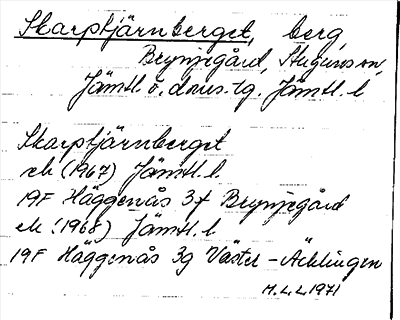 Skarptjärnberget, berg,
Brynjegård, Stuguns sn,
Jämtl ö. doms.tg. Jämtl. l
Skarptjärnberget
ek (1967) Jämtl. l.
19F Häggenås 3f Brynjegård
ek (1968) Jämtl. l
19F Häggenås 3g Väster-Äcklingen
M. L. L 1971